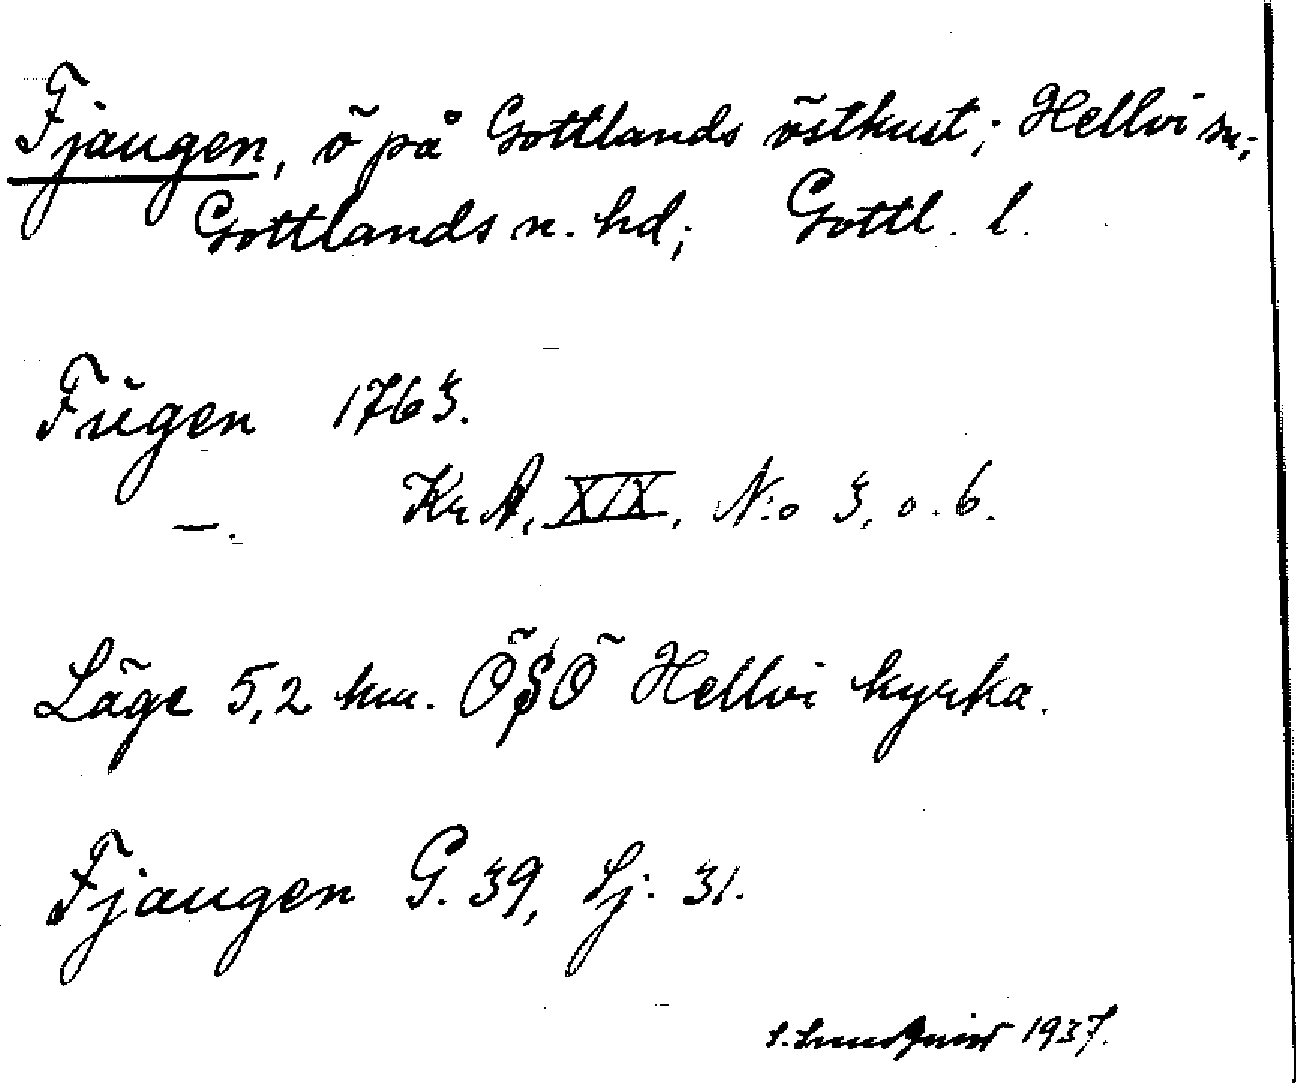 Fjaugen, ö på Gottlands östkust; Hellvi sn;
Gottlands n. hd; Gottl. l.
Fügen 1763.
—. Kr A, XIX, N:o 3, o. 6.
Läge 5,2 km. ÖSÖ Hellvi kyrka.
Fjaugen G. 39, Sj. 31.
S. Lundqvist 1937.